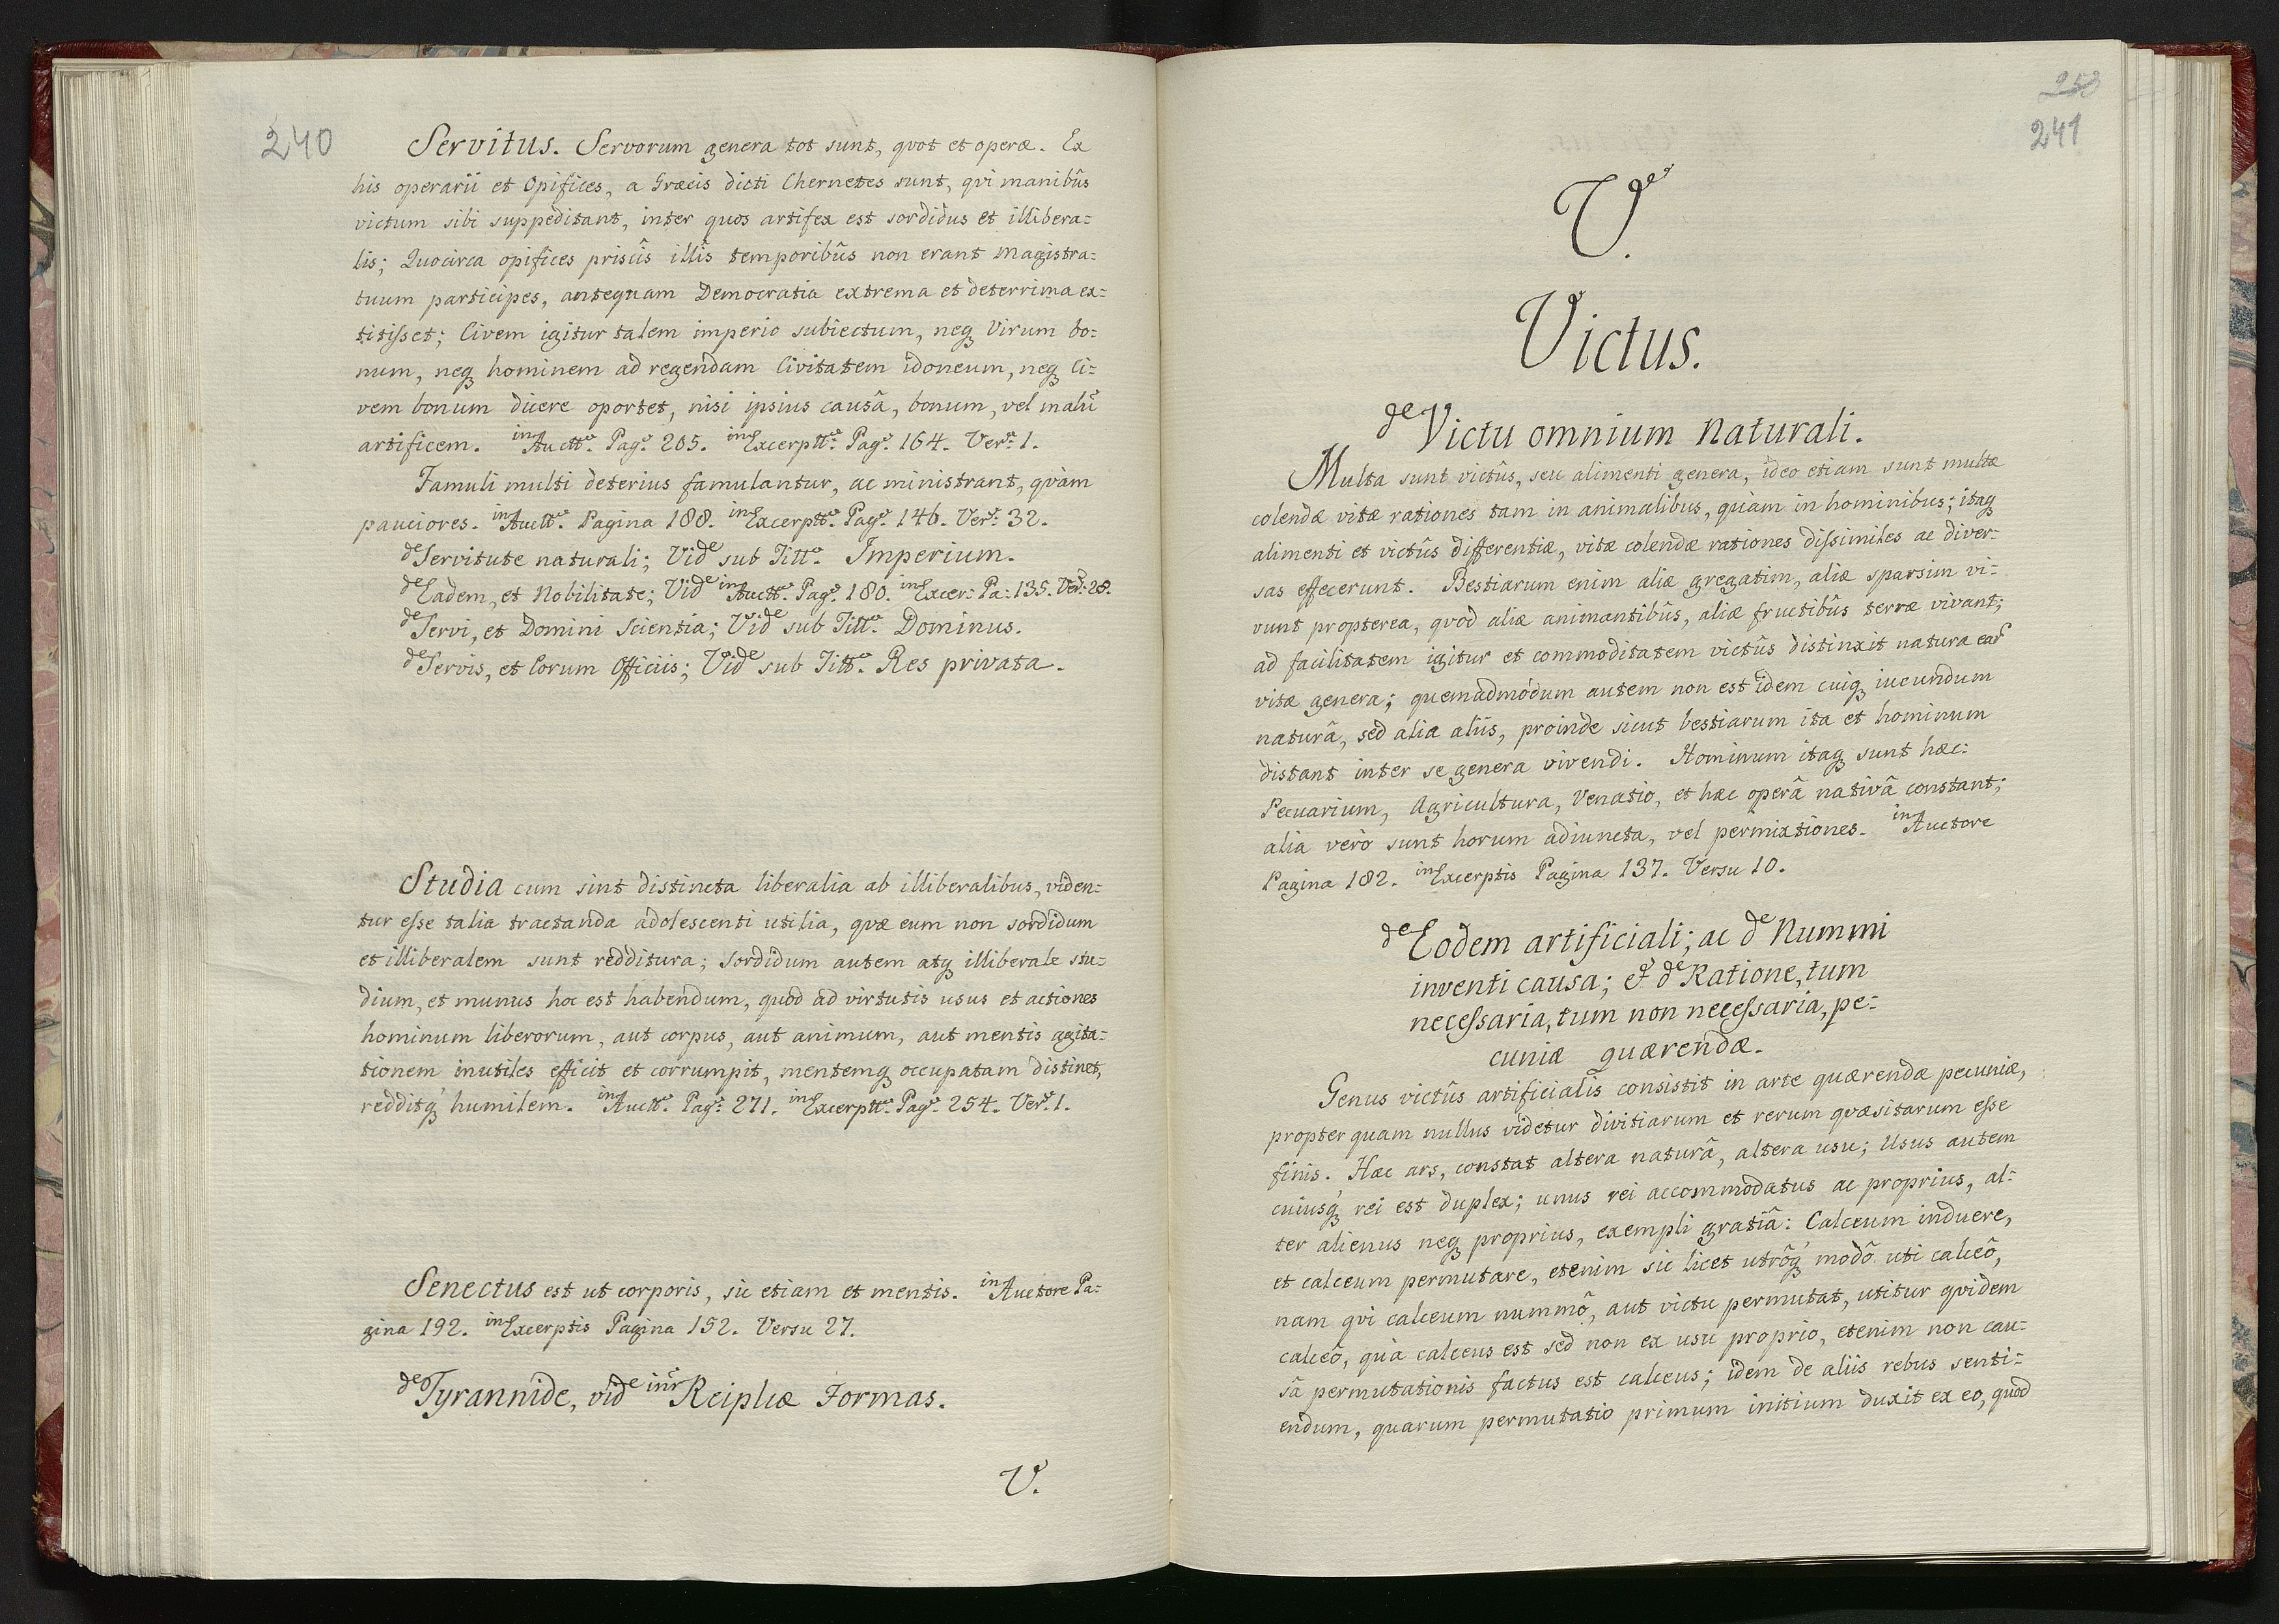 240
Servitus. Servorum genera tot sunt, qvot et operæ. Ex
his operarii et Opifices, a Græcis dicti Chernetes sunt, qvi manibûs
victum sibi suppeditant, inter quos artifex est sordidus et illibera=
lis; Quocirca opifices priscîs illîs temporibûs non erant Magistra=
tuum participes, antequam Democratia extrema et deterrima ex=
titisset; Civem igitur talem imperio subiectum, neq Virum bo=
num, neq hominem ad regendam Civitatem idoneum, neq Ci=
vem bonum dicere oportet, nisi ipsius causâ, bonum, vel malũ
artificem. in Auctt. Pag. 205. in Excerptt. Pag. 164. Ver. 1.
Famuli multi deterius famulantur, ac ministrant, qvàm
pauciores. in Auctt. Pagina 188. in Excerptt. Pag. 146. Ver. 32.
de Servitute naturali; Vide sub Titt. Imperium.
de Eadem, et Nobilitate; Vide in Auctt. Pag. 180. in Excer: Pa: 135. Ver: 28.
de Servi, et Domini Scientia; Vide sub Titt. Dominus.
de Servis, et Eorum Officiis; Vide sub Titt. Res privata.
Studia cum sint distincta liberalia ab illiberalibus, viden=
tur esse talia tractanda adolescenti utilia, qvæ eum non sordidum
et illiberalem sunt redditura; Sordidum autem atq illiberale stu=
dium, et munus hoc est habendum, quod ad virtutis usus et actiones
hominum liberorum, aut corpus, aut animum, aut mentis agita=
tionem inutiles efficit et corrumpit, mentemq occupatam distinet,
redditq humilem. in Auctt. Pag. 271. in Excerptt. Pag. 254. Ver. 1.
Senectus est ut corporis, sic etiam et mentis. in Auctore Pa=
gina 192. in Excerptis Pagina 152. Versu 27.
de Tyrannide, vide inr Reiplicæ Formas.
V.
253
241
V.
Victus.
de Victu omnium Naturali.
Multa sunt victûs, seu alimenti genera, ideo etiam sunt multæ
colendæ vitæ rationes tam in animalibus, quàm in hominibus; itaq
alimenti et victûs differentiæ, vitæ colendæ rationes dissimiles ac diver=
sas effecerunt. Bestiarum enim aliæ gregatim, aliæ sparsim vi=
vunt propterea, qvod aliæ animantibûs, aliæ fructibûs terræ vivant;
ad facilitatem igitur et commoditatem victûs distinxit natura eas
vitæ genera; quemadmodum autem non est idem cuiq iucundum
naturâ, sed alia aliis, proinde sicut bestiarum ita et hominum
distant inter se genera vivendi. Hominum itaq sunt hæc:
Pecuarium, Agricultura, Venatio, et hæc operâ nativâ constant;
alia verò sunt horum adiuncta, vel permixtiones. in Auctore
Pagina 182. in Excerptis Pagina 137. Versu 10.
de Eodem artificiali; ac de Nummi
inventi causa; & de Ratione, tum
necessaria, tum non necessaria, pe=
cuniæ quærendæ.
Genus victûs artificialis consistit in arte quærendæ pecuniæ,
propter quam nullus videtur divitiarum et rerum qvæsitarum esse
finis. Hæc ars, constat altera naturâ, altera usu; Usus autem
cuiusq rei est duplex; unus rei accommodatus ac proprius, al=
ter alienus neq proprius, exempli gratiâ: Calceum induere,
et calceum permutare, etenim sic licet utrôq modô uti calceô,
nam qvi calceum nummô, aut victu permutat, utitur qvidem
calceô, quà calceus est sed non ex usu proprio, etenim non cau=
sâ permutationis factus est calceus; idem de aliis rebus senti=
endum, quarum permutatio primum initium duxit ex eo, quod